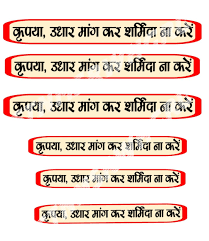 कृपया, उधार मांग कर शर्मिंदा ना करें
कृपया, उधार मांग कर शर्मिंदा ना करें
कृपया, उधार मांग कर शर्मिंदा ना करें
कृपया, उधार मांग कर शर्मिंदा ना करें
कृपया, उधार मांग कर शर्मिंदा ना करें
कृपया, उधार मांग कर शर्मिंदा ना करें